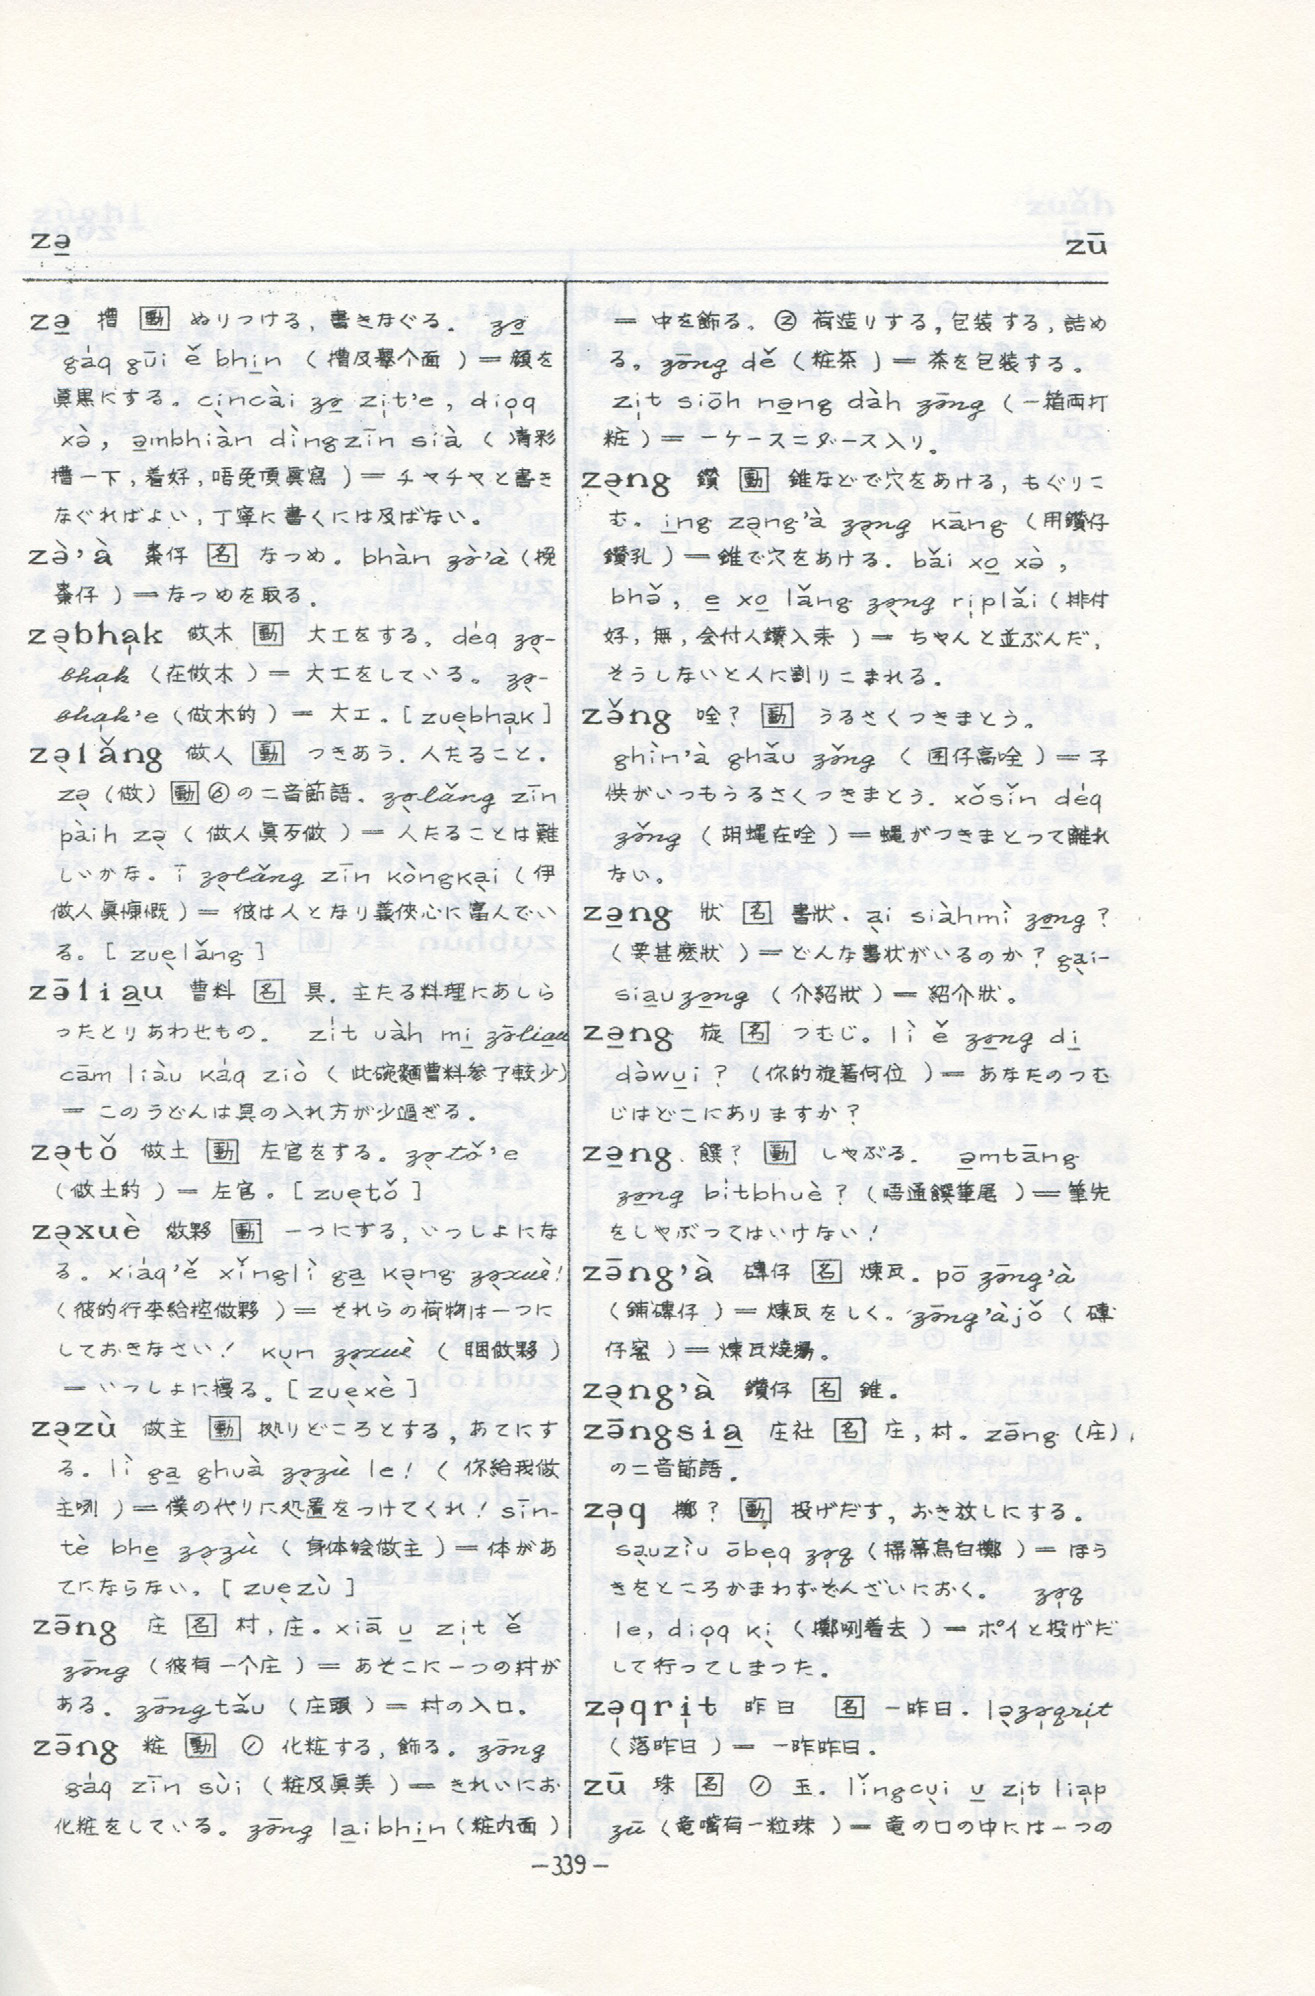 zə̱
zū
zə̱ 槽 動 ぬりつける, 書きなぐる. zə̱
gáq gūi ě bhi̱n (槽及擧个面)＝顔を
眞黒にする。cịncài zə̱ zịt'e, diọq
xə̀, ə̱mbhiàn dìngzīn sià (凊彩
槽一下,着好,唔免頂眞寫)＝チャチャと書き
なぐればよい,丁寧に書くには及ばない。
zə̀'à 棗仔 名 なつめ。bhàn zə̀'à (挽
棗仔)＝なつめを取る.
zə̣bhạk 做木 動 大工をする。déq zə̣-
bhạk (在做木)＝大工をしている。zə̣-
bhạk'e (做木的)＝大工.[zuẹbhạk]
zə̣lǎng 做人 動 つきあう.人たること.
zə̣ (做) 動⑥の二音節語. zə̣lǎng zīn
pàih zə̣ (做人眞歹做)＝人たることは難
しいかな。ī zə̣lǎng zīn kòngkại (伊
做人眞慷慨)＝彼は人となり義俠心に富んでい
る。[zuẹlǎng]
zə̄lia̱u 曹料 名 具.主たる料理にあしら
ったとりあわせもの. zít uàh mi̱ zə̄lia̱u
cām liàu káq ziò (此碗麵曹料参了較少)
＝このうどんは具の入れ方が少過ぎる.
zə̣tǒ 做土 動 左官をする。zə̣tǒ'e
(做土的)＝左官。[zuẹtǒ]
zə̣xuè 做夥 動 一つにする,いっしょにな
る。xiáq'ě xǐnglì ga̱ kə̣ng zə̣xuè!
(彼的行李給控做夥)＝それらの荷物は一つに
しておきなさい! kụn zə̣xuè (睏做夥)
＝いっしょに寝る。[zuẹxè]
zə̣zù 做主 動 拠りどころとする,あてにす
る。lì ga̱ ghuà zə̣zù le! (你給我做
主咧)＝僕の代りに処置をつけてくれ! sīn-
tè bhe̱ zə̣zù (身体⿰做主)＝体があ
てにならない。[zuẹzù]
zə̄ng 庄 名 村,庄。xiā u̱ zịt ě
zə̄ng (彼有一个庄)＝あそこに一つの村が
ある。zə̄ngtǎu (庄頭)＝村の入口.
zə̄ng 粧 動 ① 化粧する,飾る。zə̄ng
gáq zīn sùi (粧及眞美)＝きれいにお
化粧をしている。zə̄ng la̱ibhi̱n (粧内面)
＝中を飾る。② 荷造りする,包装する,詰め
る。zə̄ng dě (粧茶)＝茶を包装する。
zịt siōh nə̱ng dàh zə̄ng (一箱両打
粧)＝一ケース二ダース入り。
zə̣ng 鑽 動 錐などで穴をあける,もぐりこ
む。i̱ng zə̣ng'à zə̣ng kāng (用鑽仔
鑽孔)＝錐で穴をあける. bǎi xo̱ xə̀,
bhə̌, e̱ xo̱ lǎng zə̣ng rịplǎi (排付
好,無,会付人鑽入来)＝ちゃんと並ぶんだ,
そうしないと人に割りこまれる.
zə̌ng 唑? 動 うるさくつきまとう。
ghìn'à ghǎu zə̌ng (囝仔高唑)＝子
供がいつもうるさくつきまとう. xǒsǐn déq
zə̌ng (胡蠅在唑)＝蠅がつきまとって離れ
ない。
zə̱ng 狀 名 書狀. ại siàhmì zə̱ng?
(要甚麽狀)＝どんな書状がいるのか? gại-
sia̱uzə̱ng (介紹狀)＝紹介狀。
zə̱ng 旋 名 つむじ。lì ě zə̱ng di̱
dəwu̱i? (你的旋著何位)＝あなたのつむ
じはどこにありますか?
zə̱ng 饌? 動 しゃぶる. ə̱mtāng
zə̱ng bítbhuè? (唔通饌筆尾)＝筆先
をしゃぶってはいけない!
zə̄ng'à 磚仔 名 煉瓦。pō zə̄ng'à
(鋪磚仔)＝煉瓦をしく。zə̄ng'àjǒ (磚
仔窰)＝煉瓦燒場。
zə̣ng'à 鑽仔 名 錐。
zə̄ngsia̱ 庄社 名 庄,村。zə̄ng (庄)
の二音節語.
zə̣q 擲? 動 投げだす, おき放しにする。
sạuzìu ōbẹq zə̣q (掃箒烏白擲)＝ほう
きをところかまわずぞんざいにおく。 zə̣q
le, diọq kị (擲咧着去)＝ポイと投げだ
して行ってしまった.
zə̣qrịt 昨日 名 一昨日. lə̣zə̣qrịt
(落昨日)＝一昨昨日.
zū 珠 名 ① 玉. lǐngcụi u̱ zịt liạp
zū (竜嘴有一粒珠)＝竜の口の中には一つの
－339－